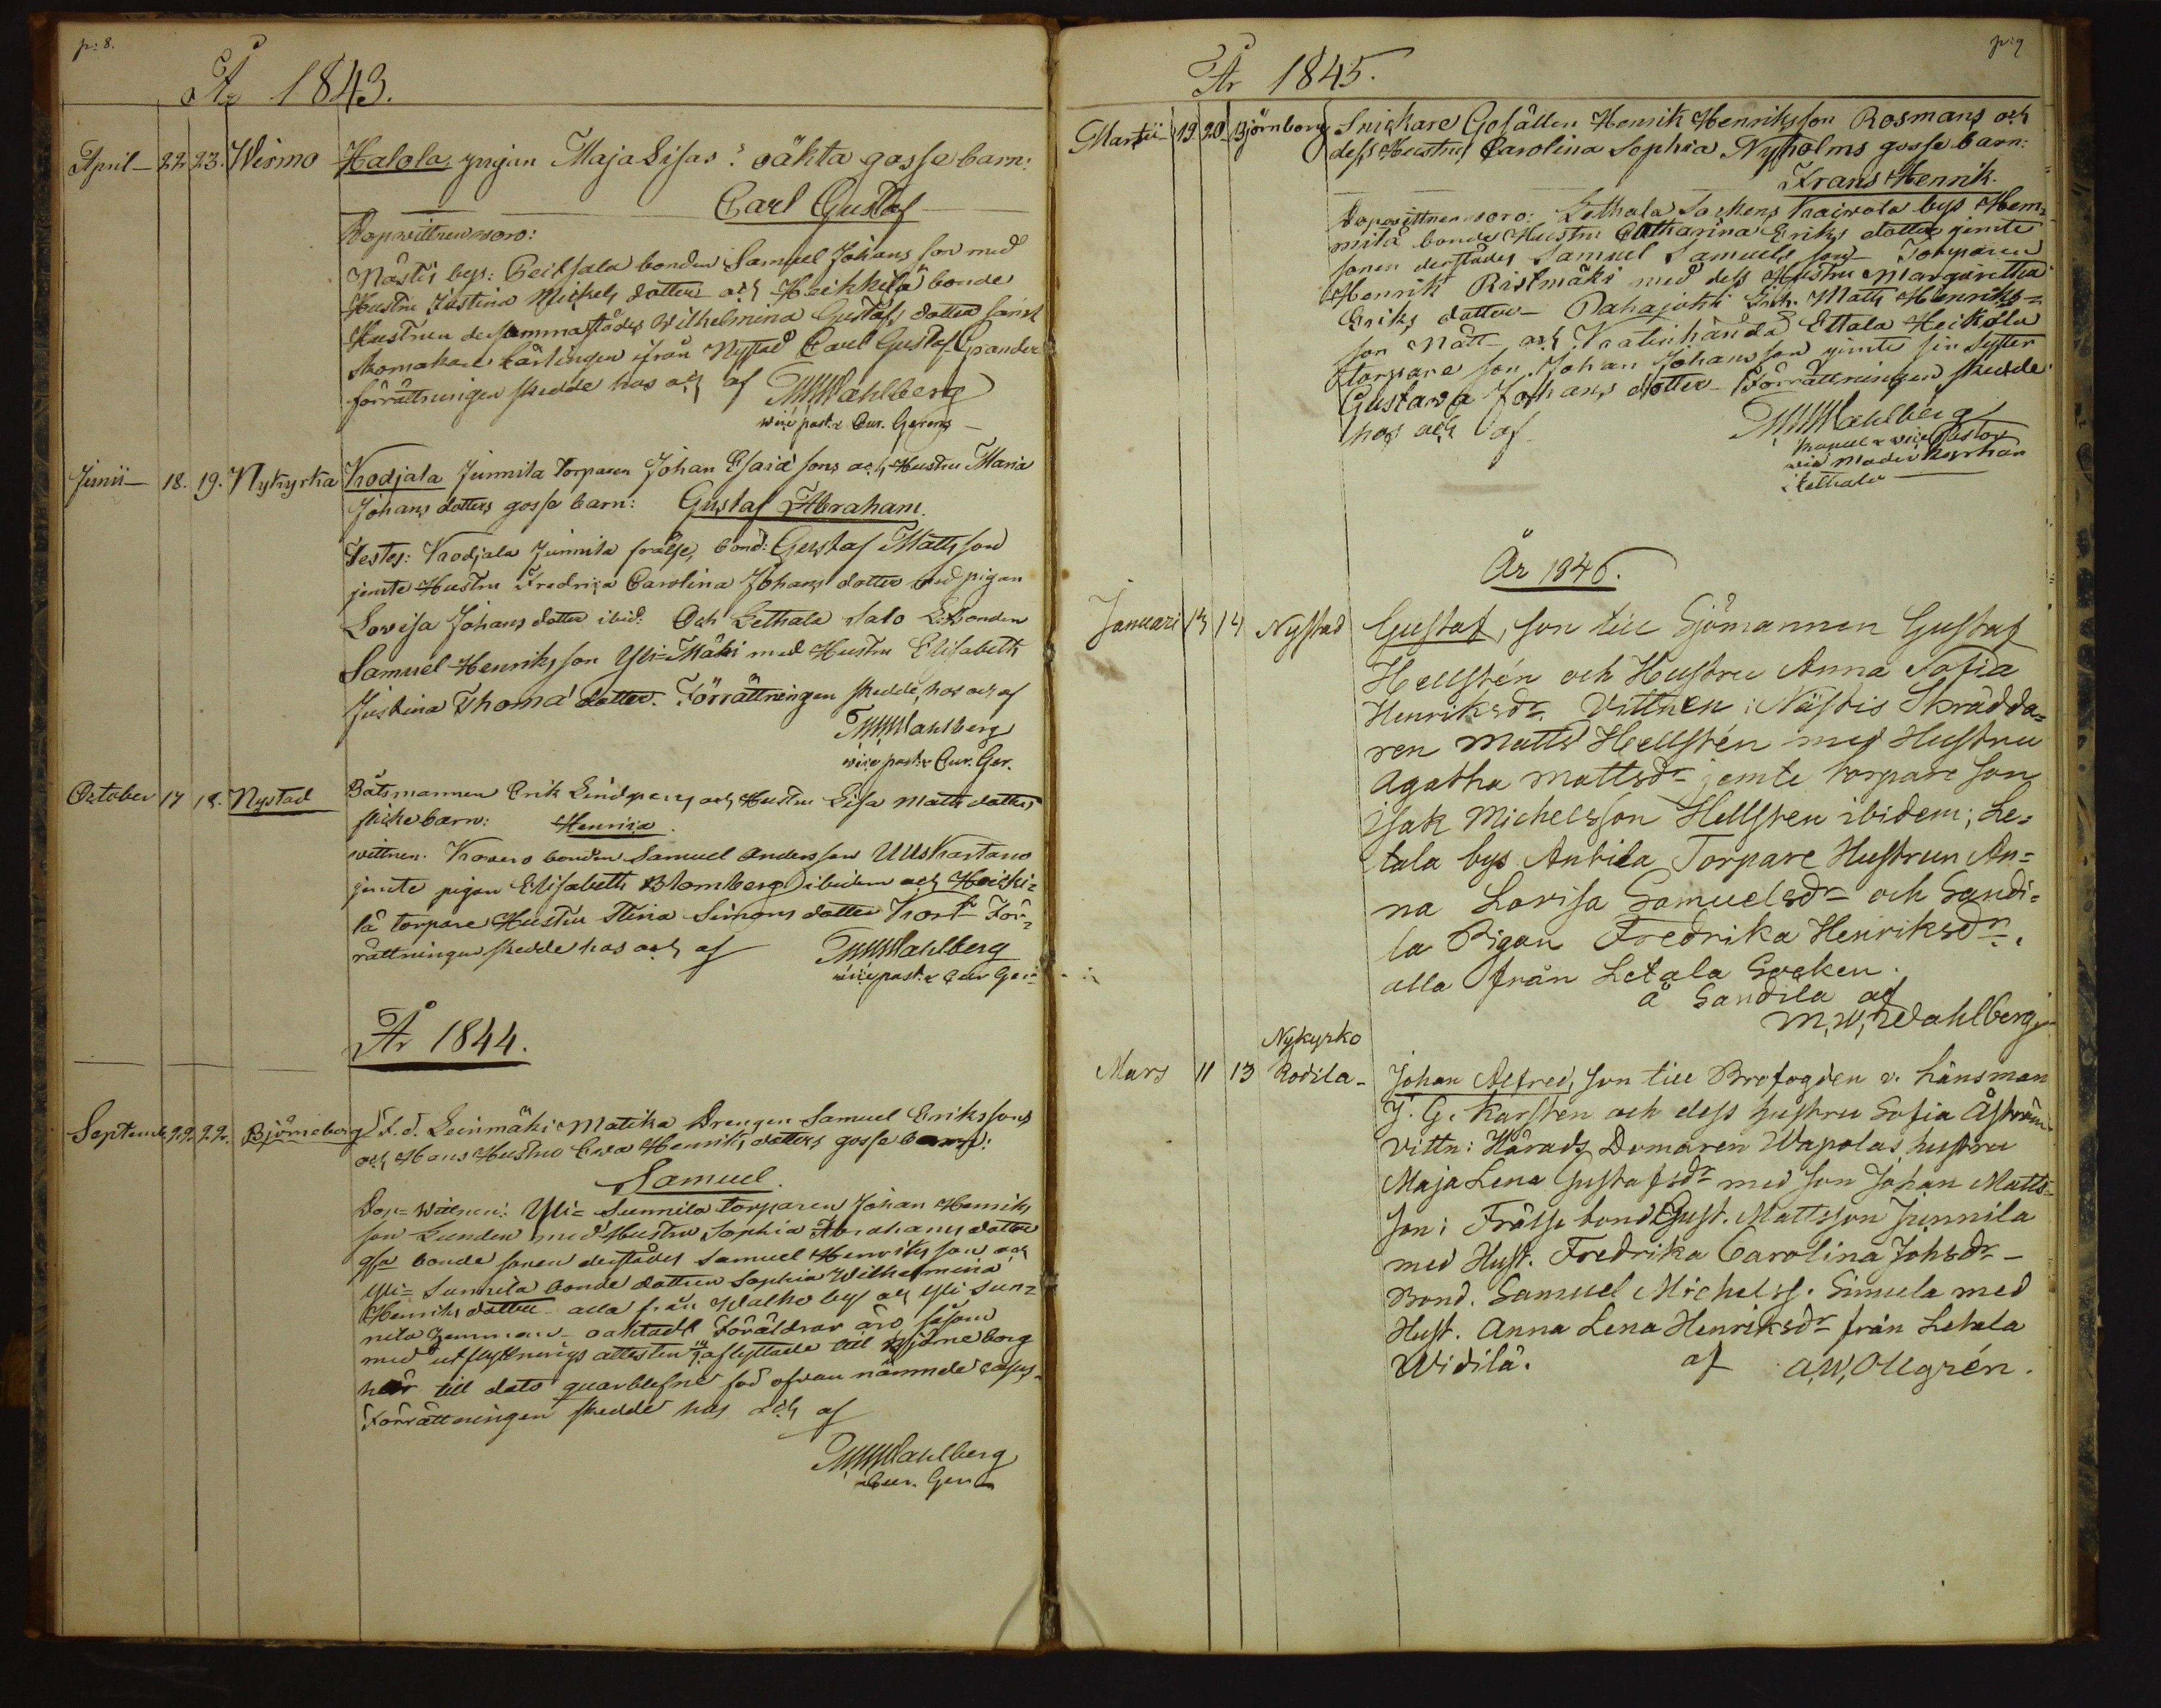 p: 8.
År 1843.
April 22 23. Wirmo Halola pigan Maja Lisas oäkta gosse barn:
Carl Gustaf
Dopwittnen woro:
Nästis bys: Peitsala bonden Samuel Johans son med
Hustru Justina Mickels dotter och Heikkilä bonde
Hustrun dersammastädes Wilhelmina Gustafs dotter samt
Skomakare Lärlingen ifrån Nystad Carl Gustaf Grander
förrättningen skedde hos och af MWWahlberg
vice past. & Cur. Gerens
Junii 18. 19. Nykyrka Krodjala Junnila Torparen Johan Esaiæ sons och Hustru Maria
Johans dotters gosse barn: Gustaf Abraham.
Testes: Krodjala Junnila frälse bond: Gustaf Matts son
jemte Hustru Fredrica Carolina Johans dotter med pigan
Lovisa Johans dotter ibid: Och Lethala Salo bonden
Samuel Henriks son Yli-Mäki med Hustru Elisabeth
Justina Thomæ dotter. Förrättningen skedde, hos och af
MWWahlberg
vice past. & Cur. Ger.
October 17 18. Nystad Båtsmannen Erik Lindberg och Hustru Lisa Matts dotters
flicke barn: Henrica.
wittnen. Krovero bonden Samuel Anders son Uuskartano
jemte pigan Elisabeth Blomberg ibidem och Heikki=
lä torpare Hustru Stina Simons dotter Kort För=
rättningen skedde hos och af MWWahlberg
vice past. & Cur Ger
År 1844.
Septemb. 22. 22. Björneborg F. d. Leinmäki Matika Drengen Samuel Erikssons
och Hans Hustru Ewa Henriks dotters gosse barn:
Samuel.
Dop=Wittnen: Yli=Sunnila torparen Johan Henriks
son Lunden med Hustru Sophia Abrahams dotter
bonde sonen derstädes Samuel Henriks son och
Yli=Sunnila bonde dottren Sophia Wilhelmina
Henriks dotter alla från Walko by och Yli Sun=
nila hemman oaktadt Föräldrar äro såsom
med utflyttnings attesten aflyttade till Björneborg
här till dato quarblefne
Förrättningen skedde hos och af
MWWahlberg
Cur. Ger
p: 9
År 1845.
Martii 19 20 Björnborg Snickare Gesällen Henrik Henriksson Rosmans och
dess Hustrus Carolina Sophia Nyholms gosse barn:
Frans Henrik.
Dopwittnen woro: Lethala Sockens Kaiwola bys Hem=
milä bonde Hustru Catharina Eriks dotter jemte
sonen derstädes Samuel Samuels son Torparen
Henrik Ristmäki med dess Hustru Margaretha
Eriks dotter Pahajoki Matts Henriks=
son Nätt och Kratinhändä Ettala Heikola
torpare son Johan Johans son jemte sin Syster
Gustava Johans dotter Förrättningen skedde
hos och af MWWahlberg
vice Pastor
wid Moder Kyrkan
i Lethala
År 1846.
Januari 13 14 Nystad Gustaf, son till Sjömannen Gustaf
Hellstén och Hustru Anna Sofia
Henriksdr. Vittnen: Nästis Skrädda=
ren Matts Hellstén med Hustru
Agatha Mattsdr jemte torpare son
Isak Michelsson Hellsten ibidem; Le=
tala bys Anttila Torpare Hustrun An=
na Lovisa Samuelsdr och Sandi=
la Pigan Fredrika Henriksdr,
alla från Letala Socken.
å Sandila af
M. W. Wahlberg
Mars 11 13 Nykyrko Kodila Johan Alfred, son till Brofogden v. Länsman
J. G. Karsten och dess hustru Sofia Åström
Vittn: Härads Domaren Wapolas, hustru
Maja Lena Gustafsdr med son Johan Matts=
son; Frälse bond Gust. Mattsson Junnila
med Hust. Fredrika Carolina Johsdr
Bond. Samuel Michelss. Simula med
Hust. Anna Lena Henriksdr från Letala
Widilä. af A. W. Ollgrén.